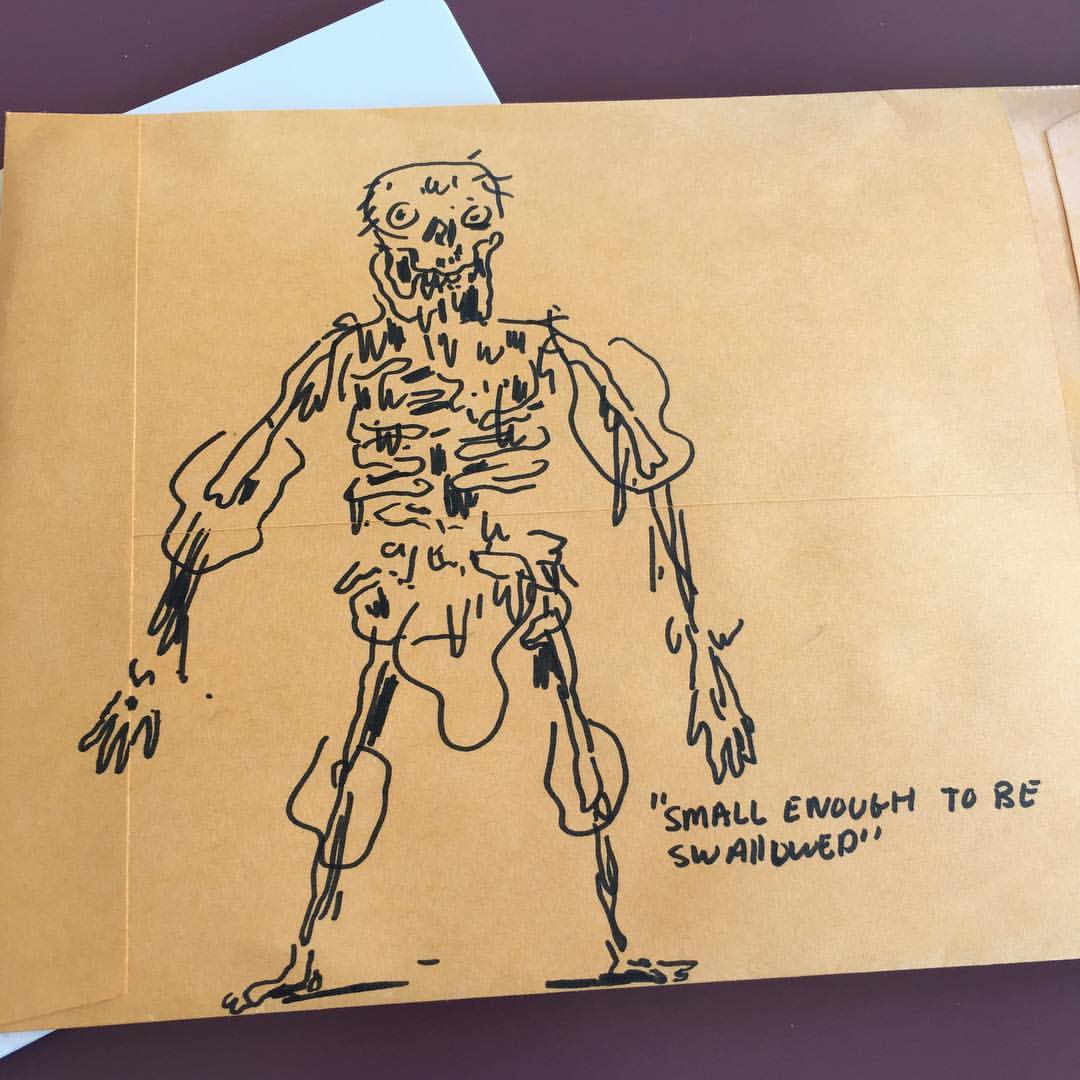 "SMALL ENOUGH TO BE
SWAllOWED"